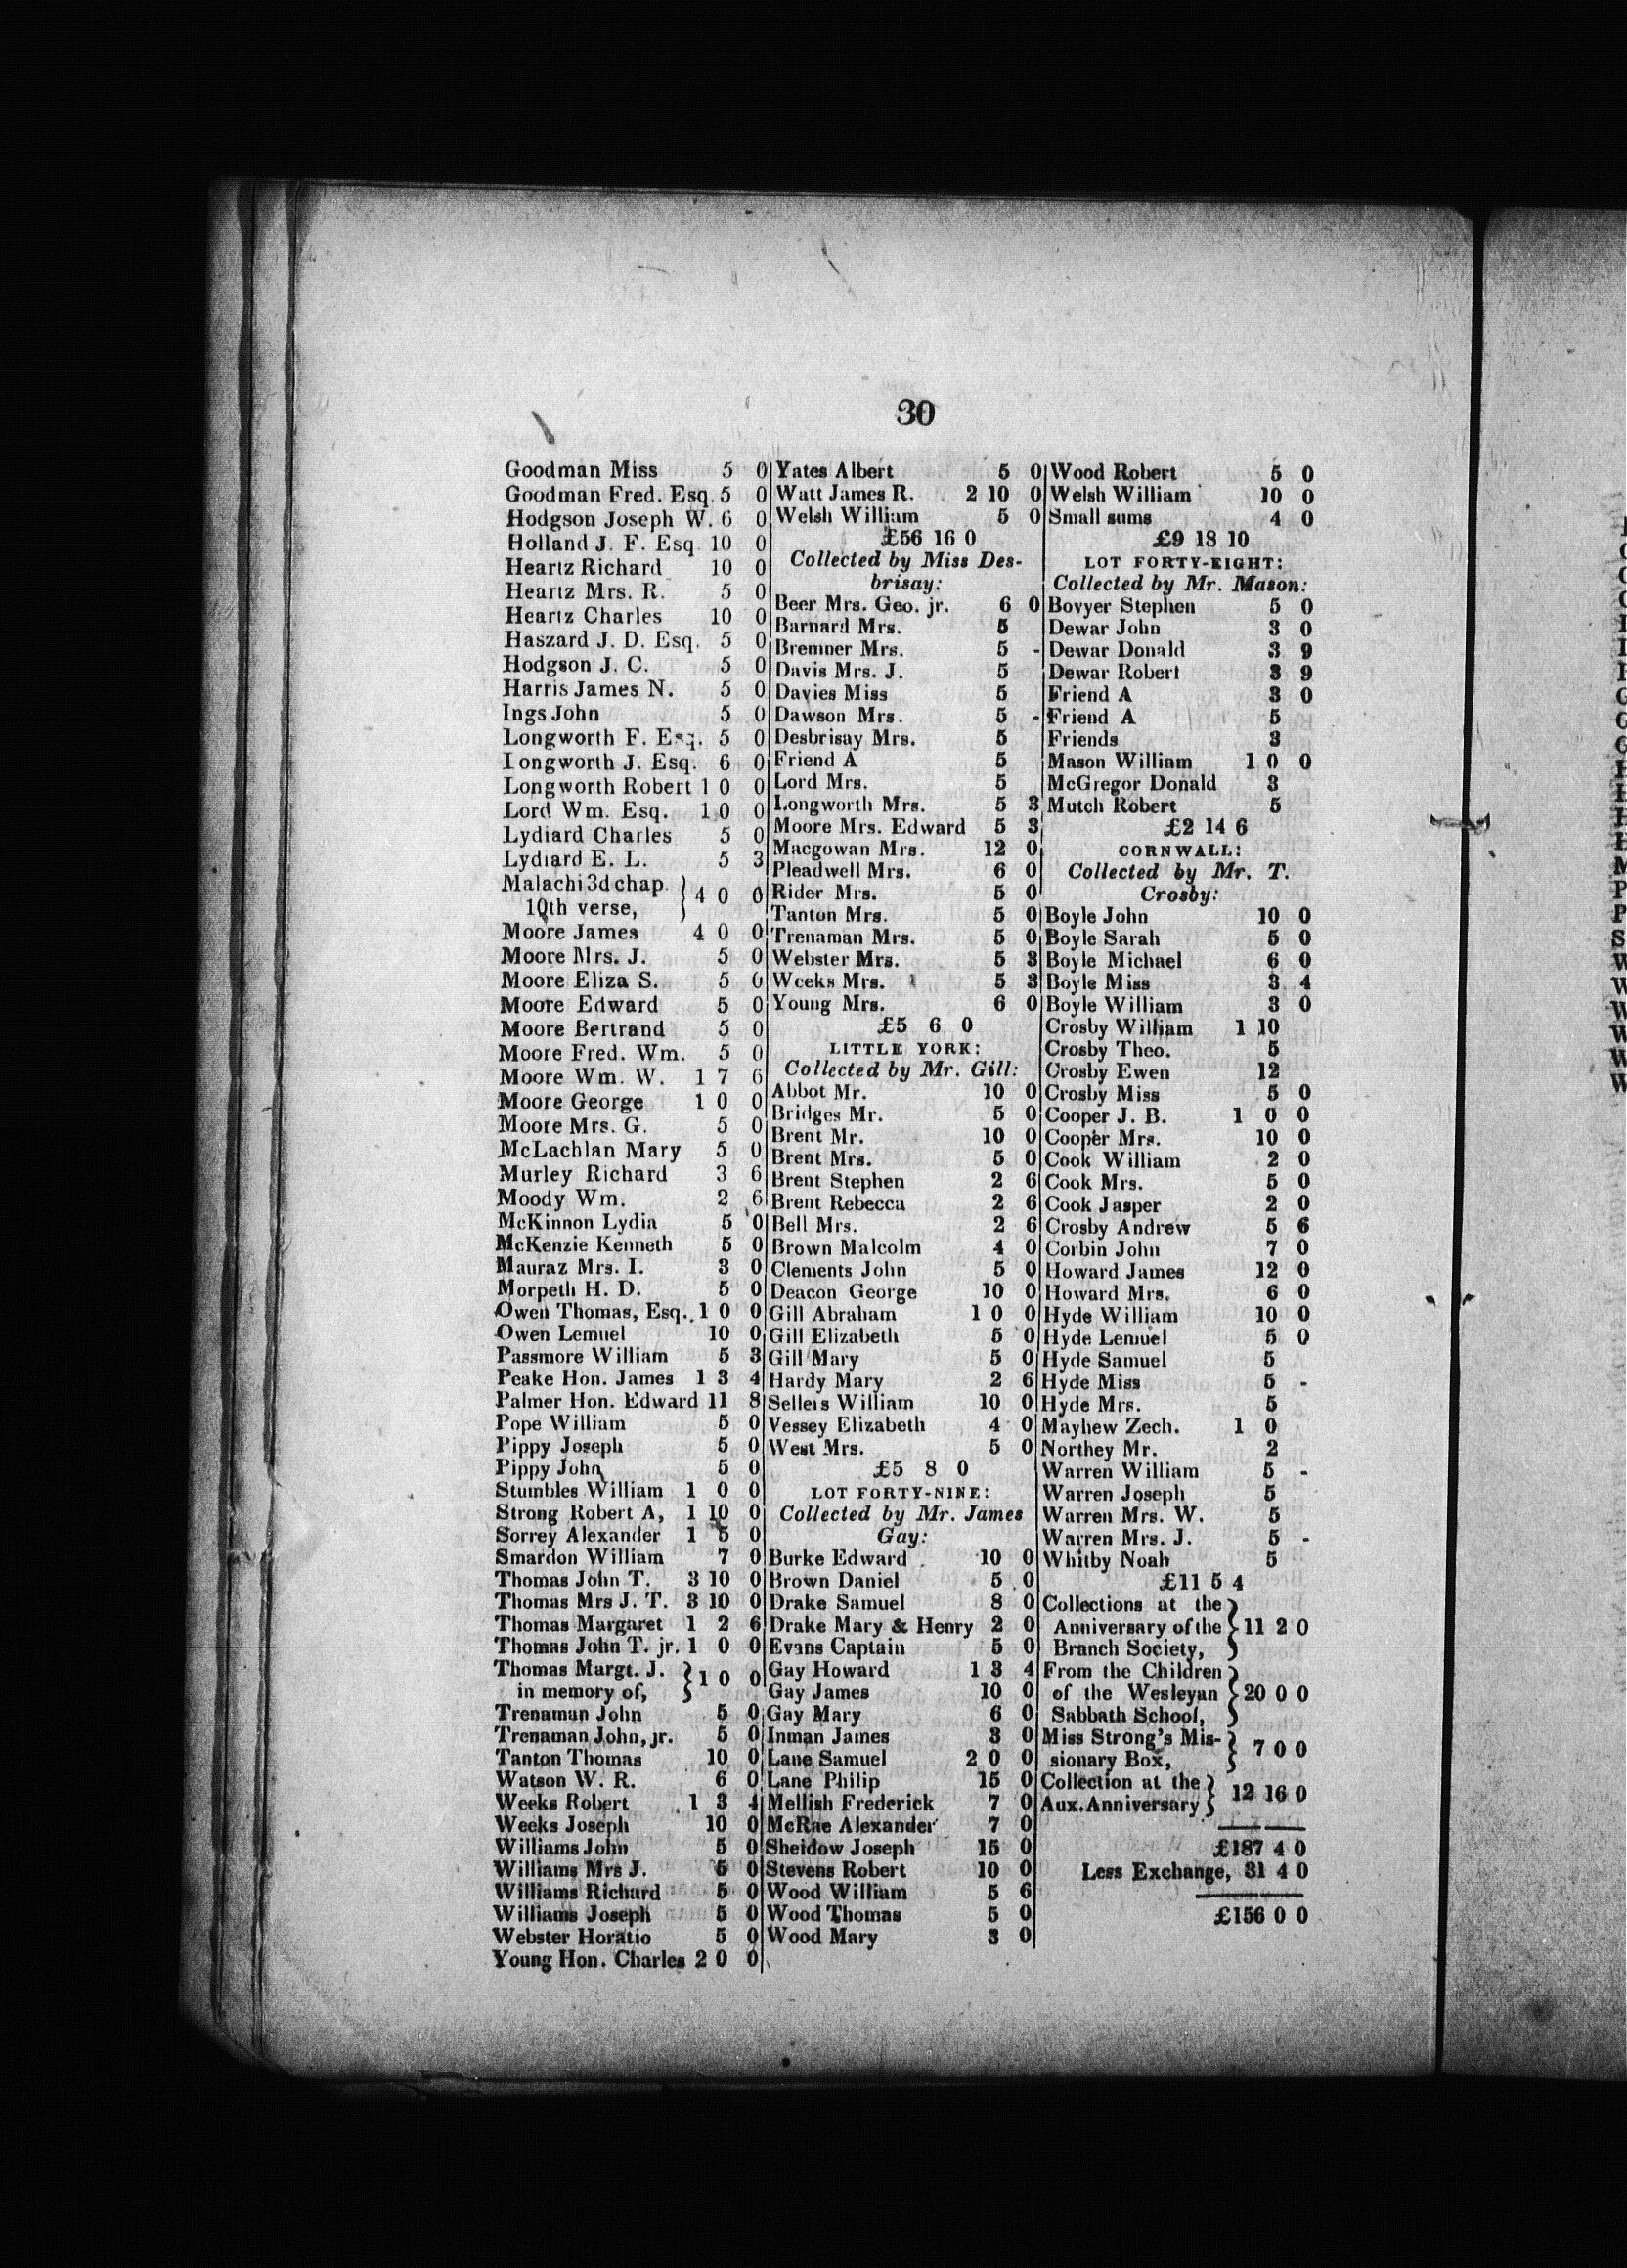 30
Goodman Miss 5 0
Goodman Fred. Esq. 5 0
Hodgson Joseph W. 6 0
Holland J. F. Esq. 10 0
Heartz Richard 10 0
Heartz Mrs. R. 5 0
Heartz Charles 10 0
Haszard J. D. Esq. 5 0
Hodgson J. C. 5 0
Harris James N. 5 0
Ings John 5 0
Longworth F. Esq. 5 0
Longworth J. Esq. 6 0
Longworth Robert 1 0 0
Lord Wm. Esq. 1 0 0
Lydiard Charles 5 0
Lydiard E. L. 5 3
Malachi 3d chap. } 4 0 0
10th verse,
Moore James 4 0 0
Moore Mrs. J. 5 0
Moore Eliza S. 5 0
Moore Edward 5 0
Moore Bertrand 5 0
Moore Fred. Wm. 5 0
Moore Wm. W. 1 7 6
Moore George 1 0 0
Moore Mrs. G. 5 0
McLachlan Mary 5 0
Murley Richard 3 6
Moody Wm. 2 6
McKinnon Lydia 5 0
McKenzie Kenneth 5 0
Mauraz Mrs. I. 3 0
Morpeth H. D. 5 0
Owen Thomas, Esq. 1 0 0
Owen Lemuel 10 0
Passmore William 5 3
Peake Hon. James 1 3 4
Palmer Hon. Edward 11 8
Pope William 5 0
Pippy Joseph 5 0
Pippy John 5 0
Stumbles William 1 0 0
Strong Robert A, 1 10 0
Sorrey Alexander 1 5 0
Smardon William 7 0
Thomas John T. 3 10 0
Thomas Mrs J. T. 3 10 0
Thomas Margaret 1 2 6
Thomas John T. jr. 1 0 0
Thomas Margt. J. } 1 0 0
in memory of,
Trenaman John 5 0
Trenaman John, jr. 5 0
Tanton Thomas 10 0
Watson W. R. 6 0
Weeks Robert 1 3 4
Weeks Joseph 10 0
Williams John 5 0
Williams Mrs J. 5 0
Williams Richard 5 0
Williams Joseph 5 0
Webster Horatio 5 0
Young Hon. Charles 2 0 0
Yates Albert 5 0
Watt James R. 2 10 0
Welsh William 5 0
£56 16 0
Collected by Miss Des-
brisay:
Beer Mrs. Geo. jr. 6 0
Barnard Mrs. 5
Bremner Mrs. 5 -
Davis Mrs. J. 5
Davies Miss 5
Dawson Mrs. 5 -
Desbrisay Mrs. 5
Friend A 5
Lord Mrs. 5
Longworth Mrs. 5 3
Moore Mrs. Edward 5 3
Macgowan Mrs. 12 0
Pleadwell Mrs. 6 0
Rider Mrs. 5 0
Tanton Mrs. 5 0
Trenaman Mrs. 5 0
Webster Mrs. 5 3
Weeks Mrs. 5 3
Young Mrs. 6 0
£5 6 0
LITTLE YORK:
Collected by Mr. Gill:
Abbot Mr. 10 0
Bridges Mr. 5 0
Brent Mr. 10 0
Brent Mrs. 5 0
Brent Stephen 2 6
Brent Rebecca 2 6
Bell Mrs. 2 6
Brown Malcolm 4 0
Clements John 5 0
Deacon George 10 0
Gill Abraham 1 0 0
Gill Elizabeth 5 0
Gill Mary 5 0
Hardy Mary 2 6
Sellers William 10 0
Vessey Elizabeth 4 0
West Mrs. 5 0
£5 8 0
LOT FORTY-NINE:
Collected by Mr. James
Gay:
Burke Edward 10 0
Brown Daniel 5 0
Drake Samuel 8 0
Drake Mary & Henry 2 0
Evans Captain 5 0
Gay Howard 1 3 4
Gay James 10 0
Gay Mary 6 0
Inman James 3 0
Lane Samuel 2 0 0
Lane Philip 15 0
Mellish Frederick 7 0
McRae Alexander 7 0
Sheidow Joseph 15 0
Stevens Robert 10 0
Wood William 5 6
Wood Thomas 5 0
Wood Mary 3 0
Wood Robert 5 0
Welsh William 10 0
Small sums 4 0
£9 18 10
LOT FORTY-EIGHT:
Collected by Mr. Mason:
Bovyer Stephen 5 0
Dewar John 3 0
Dewar Donald 3 9
Dewar Robert 3 9
Friend A 3 0
Friend A 5
Friends 3
Mason William 1 0 0
McGregor Donald 3
Mutch Robert 5
£2 14 6
CORNWALL:
Collected by Mr. T.
Crosby:
Boyle John 10 0
Boyle Sarah 5 0
Boyle Michael 6 0
Boyle Miss 3 4
Boyle William 3 0
Crosby William 1 10
Crosby Theo. 5
Crosby Ewen 12
Crosby Miss 5 0
Cooper J. B. 1 0 0
Cooper Mrs. 10 0
Cook William 2 0
Cook Mrs. 5 0
Cook Jasper 2 0
Crosby Andrew 5 6
Corbin John 7 0
Howard James 12 0
Howard Mrs. 6 0
Hyde William 10 0
Hyde Lemuel 5 0
Hyde Samuel 5
Hyde Miss 5 -
Hyde Mrs. 5
Mayhew Zech. 1 0
Northey Mr. 2
Warren William 5 -
Warren Joseph 5
Warren Mrs. W. 5
Warren Mrs. J. 5 -
Whitby Noah 5
£11 5 4
Collections at the
Anniversary of the } 11 2 0
Branch Society,
From the Children
of the Wesleyan } 20 0 0
Sabbath School,
Miss Strong's Mis- } 7 0 0
sionary Box,
Collection at the } 12 16 0
Aux. Anniversary
£187 4 0
Less Exchange, 31 4 0
£156 0 0